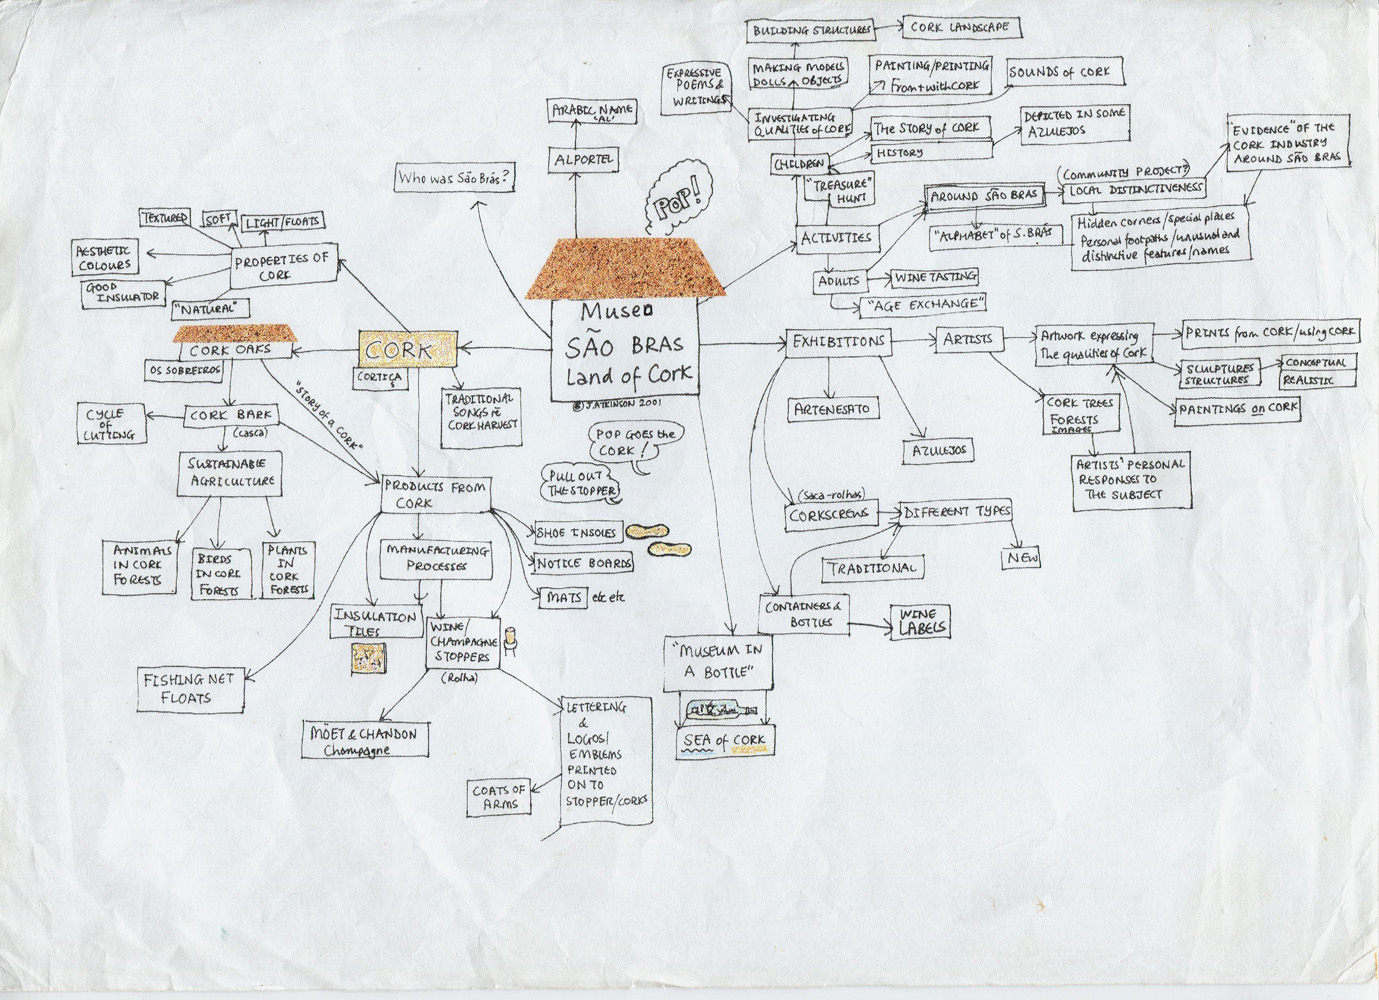 BUILDING STRUCTURES
CORK LANDSCAPE
EXPRESSIVE
POEMS &
WRITINGS
MAKING MODELS
DOLLS OBJECTS
PAINTING/PRINTING
From + with CORK
SOUNDS of CORK
INVESTIGATING
QUALITIES of CORK
The STORY of CORK
HISTORY
DEPICTED IN SOME
AZULEJOS
CHILDREN
"TREASURE"
HUNT
ACTIVITIES
AROUND SÃO BRAS
(COMMUNITY PROJECT?)
LOCAL DISTINCTIVENESS
"EVIDENCE" OF THE
CORK INDUSTRY
AROUND SÃO BRAS
"ALPHABET" of S. BRÁS
Hidden corners/special places
Personal footpaths/unusual and
distinctive features/names
ADULTS
WINE TASTING
"AGE EXCHANGE"
ARABIC NAME
"AL"
ALPORTEL
Who was São Brás?
POP!
Museo
SÃO BRAS
Land of Cork
© J. ATKINSON 2001
POP GOES the
CORK!
PULL OUT
THE STOPPER
TEXTURED
SOFT
LIGHT/FLOATS
AESTHETIC
COLOURS
PROPERTIES OF
CORK
GOOD
INSULATOR
"NATURAL"
CORK
CORTIÇA
CORK OAKS
OS SOBREIROS
"STORY of a CORK"
TRADITIONAL
SONGS re
CORK HARVEST
CYCLE
OF
CUTTING
CORK BARK
(casca)
SUSTAINABLE
AGRICULTURE
ANIMALS
IN CORK
FORESTS
BIRDS
IN CORK
FORESTS
PLANTS
IN
CORK
FORESTS
PRODUCTS FROM
CORK
MANUFACTURING
PROCESSES
SHOE INSOLES
NOTICE BOARDS
MATS etc etc
INSULATION
TILES
WINE/
CHAMPAGNE
STOPPERS
(Rolha)
FISHING NET
FLOATS
MÖET & CHANDON
Champagne
LETTERING
&
LOGOS/
EMBLEMS
PRINTED
ON TO
STOPPER/CORKS
COATS OF
ARMS
EXHIBITIONS
ARTISTS
Artwork expressing
The qualities of Cork
PRINTS from CORK/using CORK
SCULPTURES
STRUCTURES
CONCEPTUAL
REALISTIC
PAINTINGS on CORK
CORK TREES
FORESTS
IMAGES
ARTISTS' PERSONAL
RESPONSES TO
THE SUBJECT
ARTENESATO
AZULEJOS
(Saca-rolhas)
CORKSCREWS
DIFFERENT TYPES
TRADITIONAL
NEW
CONTAINERS &
BOTTLES
WINE
LABELS
"MUSEUM IN
A BOTTLE"
SEA of CORK